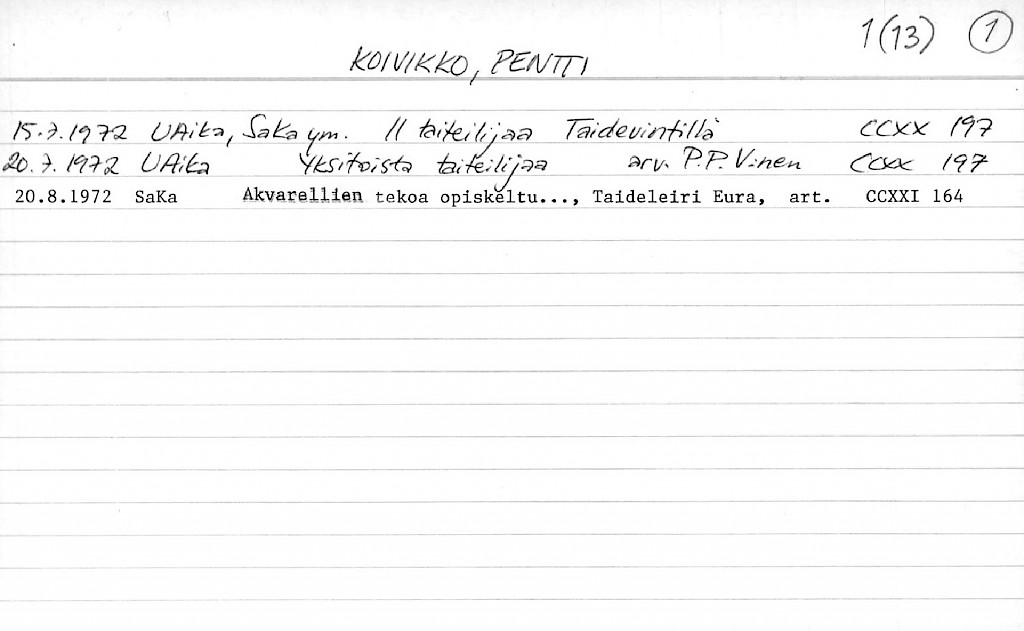 1(13) 1
KOIVIKKO, PENTTI
15.7.1972 UAika, SaKa ym. 11 taiteilijaa Taidevintillä CCXX 197
20.7.1972 UAika Yksitoista taiteilijaa arv. P.P. V:nen CCXX 197
20.8.1972 SaKa Akvarellien tekoa opiskeltu..., Taideleiri Eura, art. CCXXI 164